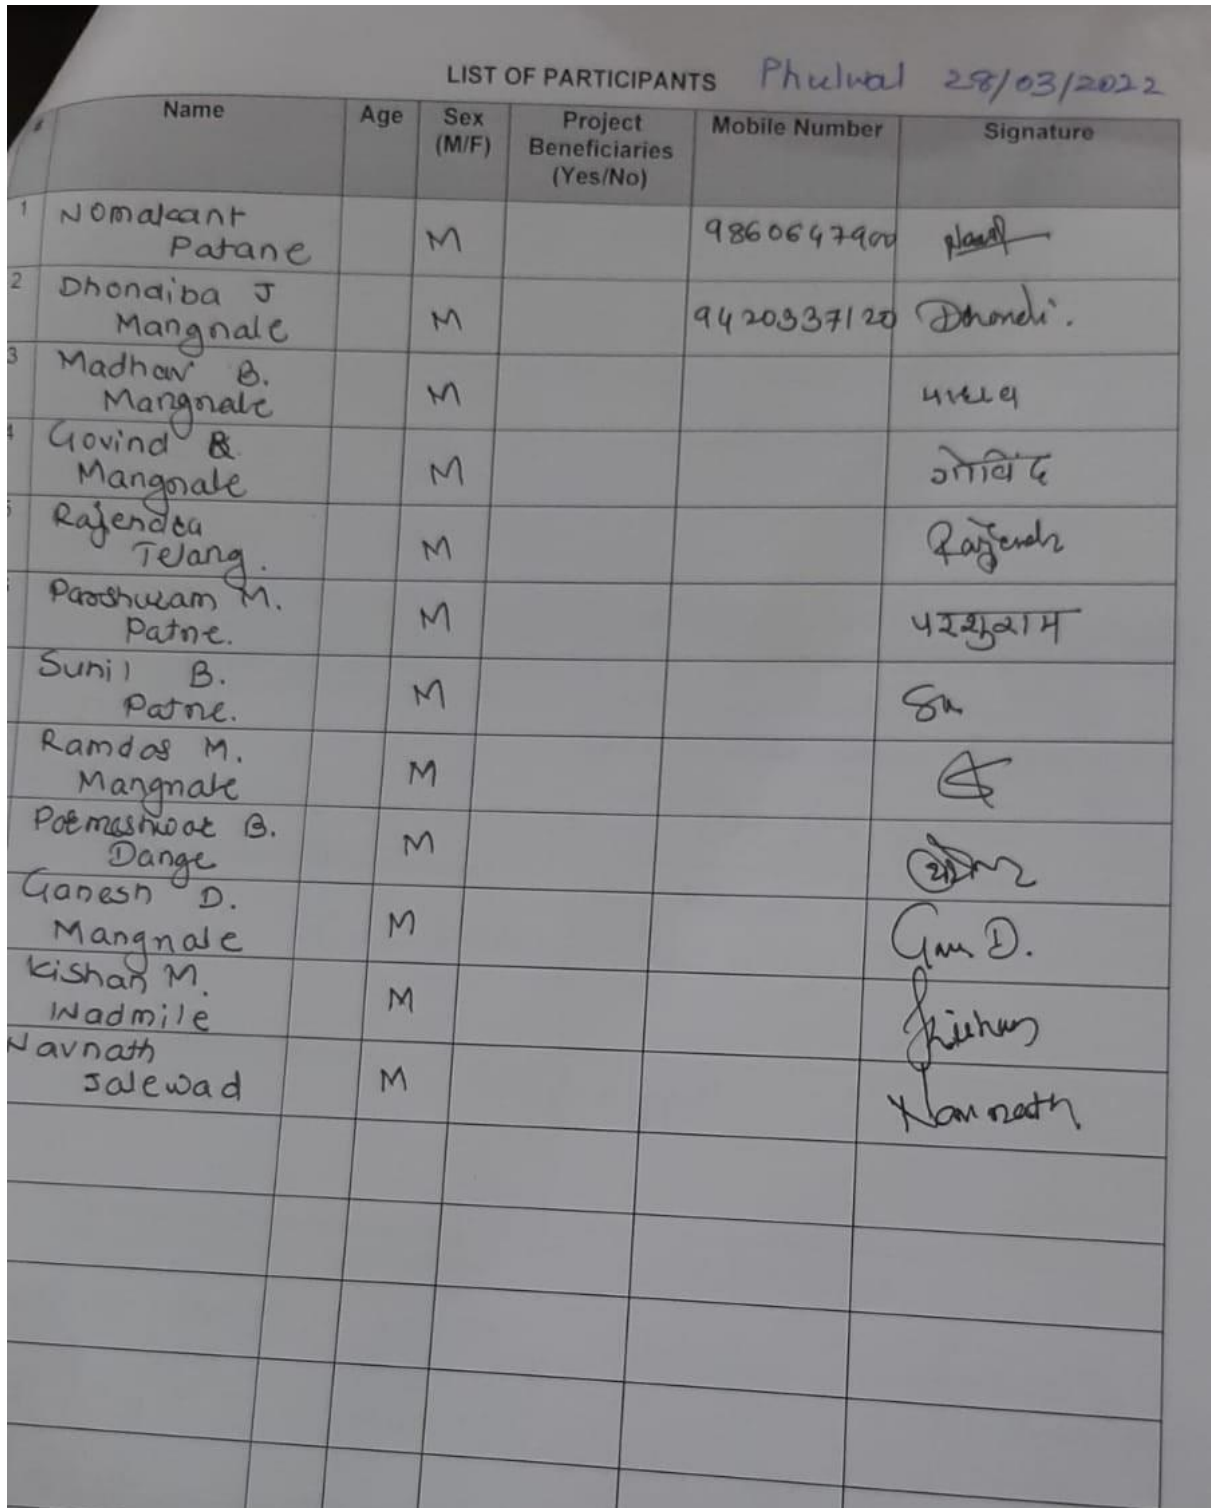 LIST OF PARTICIPANTS Phulwal 28/03/2022
# Name Age Sex (M/F) Project Beneficiaries (Yes/No) Mobile Number Signature
1 Nomakant
Patane M 9860647900
2 Dhondiba J
Mangnale M 9420337120 Dhondi.
3 Madhav B.
Mangnale M माधव
4 Govind B.
Mangnale M गोविंद
5 Rajendra
Telang. M Rajendr
Parshuram M.
Patne. M परशुराम
Sunil B.
Patne. M Su
Ramdas M.
Mangnale M
Parmeshwar B.
Dange M
Ganesh D.
Mangnale M Gan D.
Kishan M.
Wadmile M Kishan
Navnath
Jalewad M Navnath